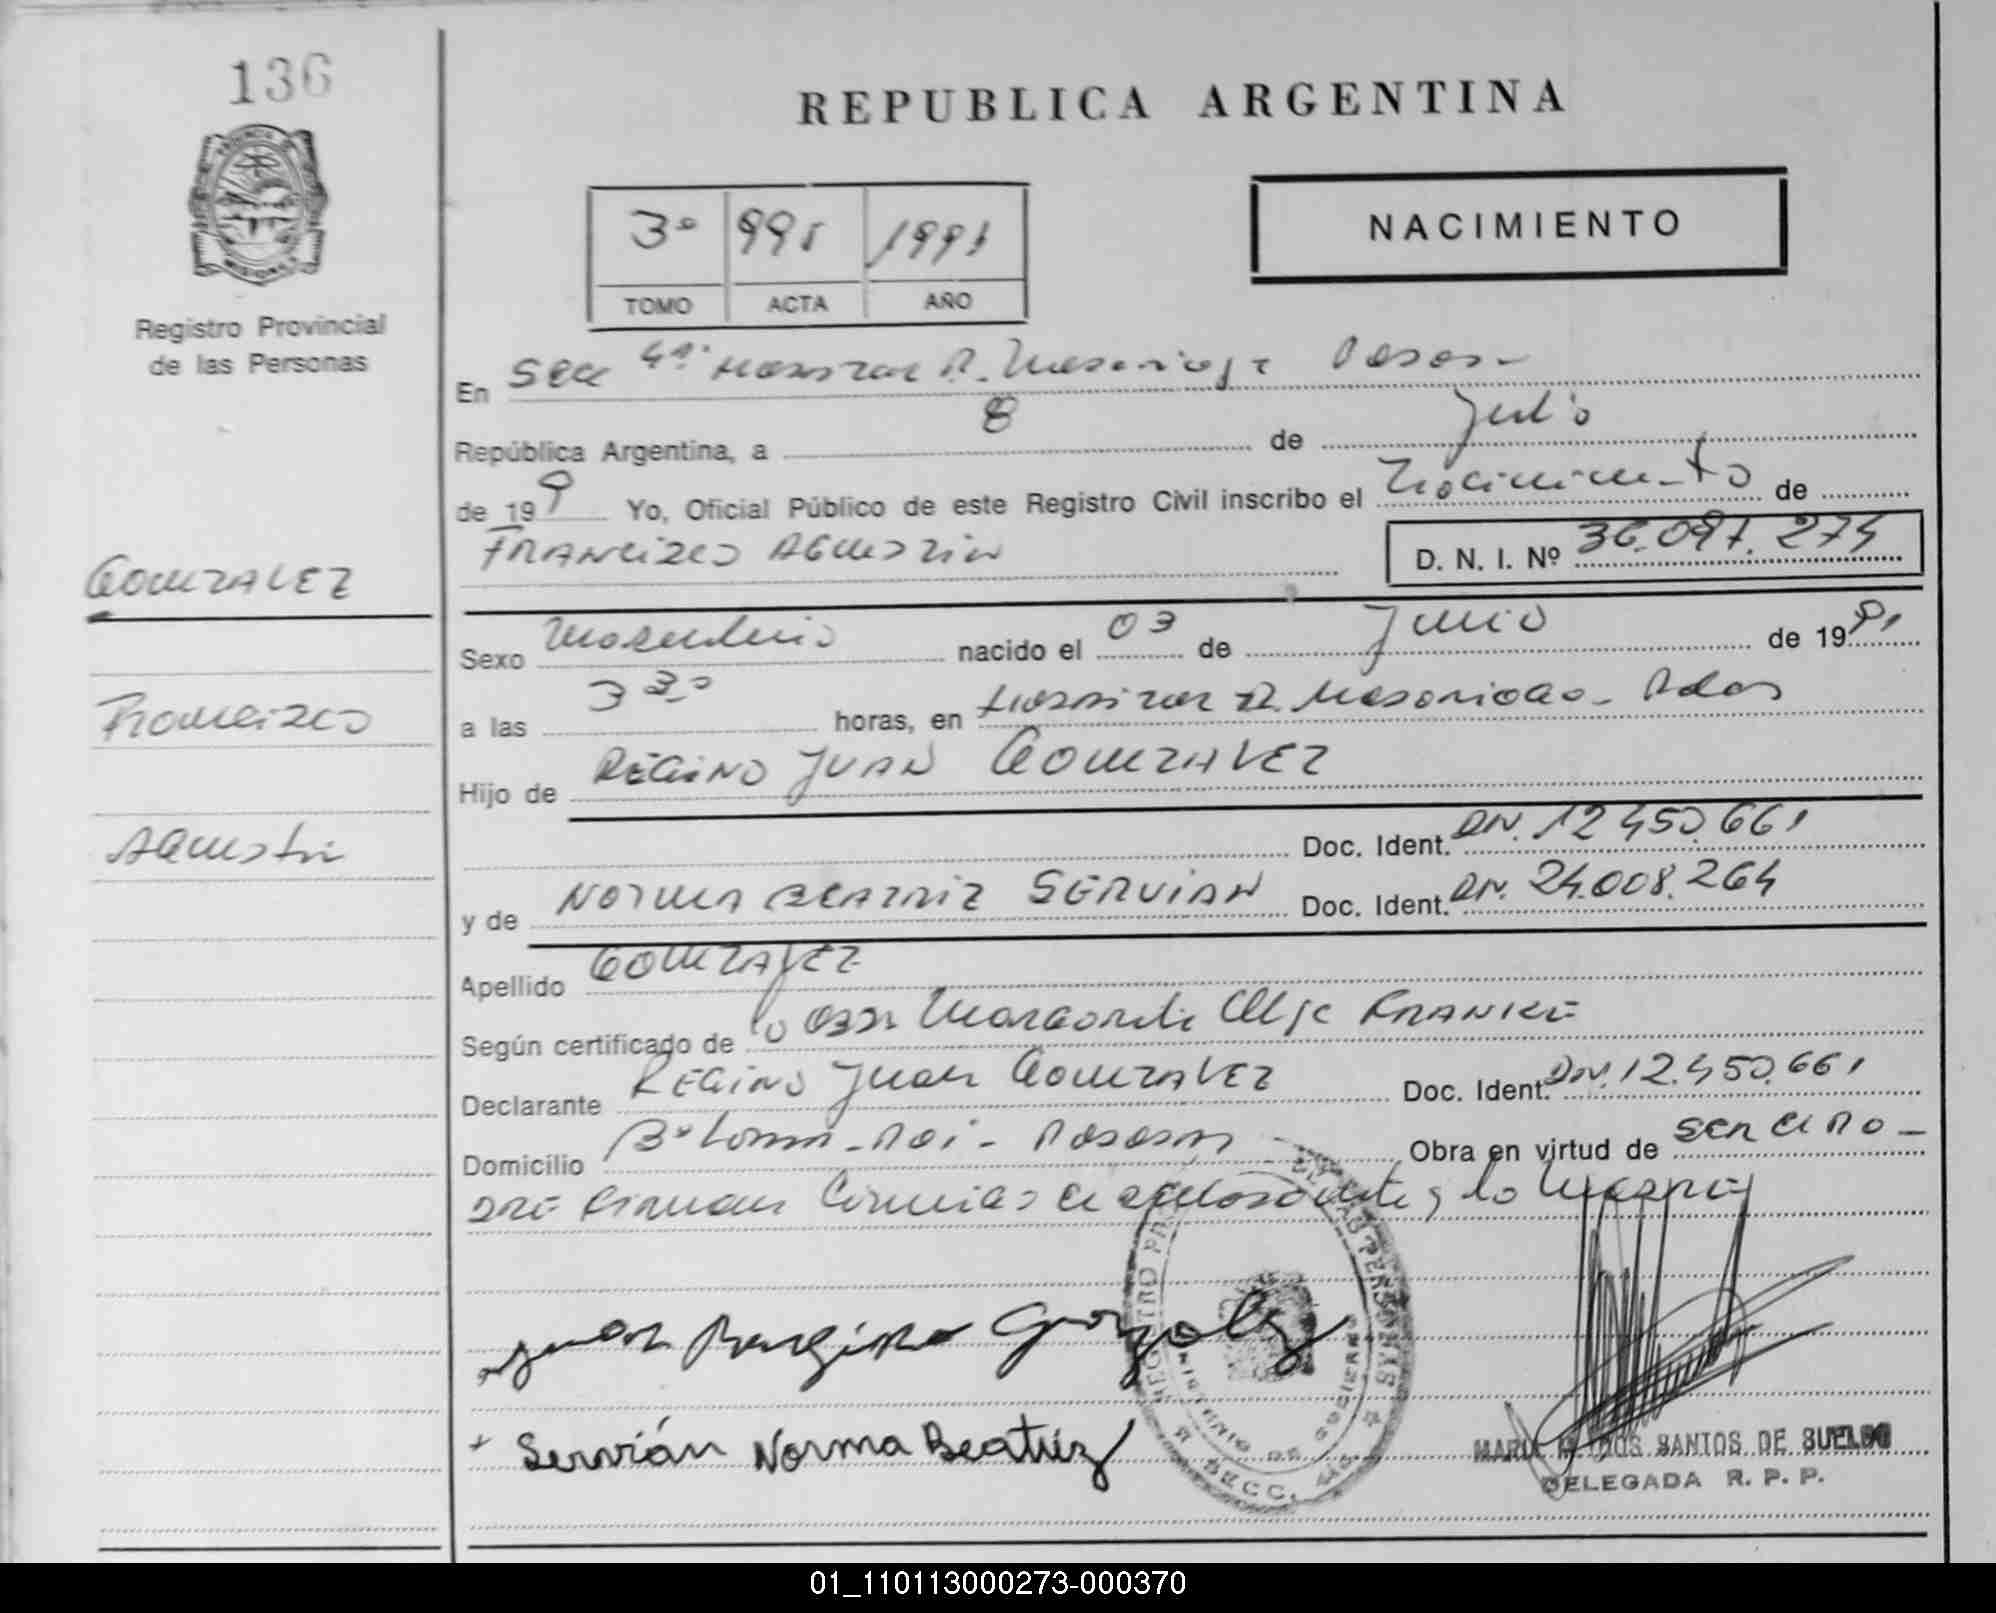 136
REPUBLICA ARGENTINA
NACIMIENTO
3º 995 1991
TOMO ACTA AÑO
Registro Provincial
de las Personas
En Secc 4ª. Hospital R. Madariaga Posadas
República Argentina, a 8 de Julio
de 199 Yo, Oficial Público de este Registro Civil inscribo el Nacimiento de
FRANCISCO AGUSTIN D. N. I. Nº 36.097.274
GONZALEZ
Francisco
Agustin
Sexo Masculino nacido el 03 de Junio de 1991
a las 3 30 horas, en Hospital R. Madariaga - Pdas
Hijo de REGINO JUAN GONZALEZ
Doc. Ident. DN. 12.450.661
y de NORMA BEATRIZ SERVIAN Doc. Ident. DN. 24.008.264
Apellido GONZALEZ
Según certificado de la Obst Margarita Franke
Declarante REGINO Juan GONZALEZ Doc. Ident. DN. 12.450.661
Domicilio Bº Posadas Obra en virtud de ser el Pro-
pre Firman el declarante y la Madre
Juan Regino Gonzalez
+ Servián Norma Beatriz
REGISTRO PROVINCIAL DE LAS PERSONAS
MINISTERIO DE GOBIERNO
SECC.
SANTOS DE SUELDO
DELEGADA R. P. P.
01_110113000273-000370